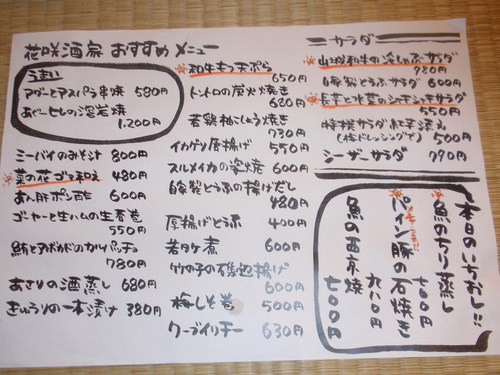 花咲酒家 おすすめメニュー
うまい
アグーとアスパラ串焼 580円
あぐーセレの溶岩焼
1,200円
ミーバイのみそ汁 800円
菜の花ゴマ和え 480円
あん肝ポン酢 600円
ゴーヤーと生ハムの生春巻
550円
鮪とアボカドのカルパッチョ
780円
あさりの酒蒸し 680円
きゅうりの一本漬け 380円
和牛もつ天ぷら
650円
トントロの炭火焼き
680円
若鶏柚こしょう焼き
730円
イカゲソ唐揚げ 550円
スルメイカの姿焼 600円
自家製とうふの揚げだし
480円
厚揚げとうふ 400円
若タケ煮 600円
竹の子の磯辺揚げ
600円
梅しそ巻 500円
クーブイリチー 630円
サラダ
山城和牛の冷しゃぶサラダ
980円
自家製とうふサラダ 600円
長芋と水菜のシャキシャキサラダ
550円
特撰サラダ 紅芋添え
(梅ドレッシングで) 500円
シーザーサラダ 790円
本日のいちおし!!
魚のちり蒸し
七〇〇円
パイン豚の石焼き
九八〇円
魚の西京焼
七〇〇円